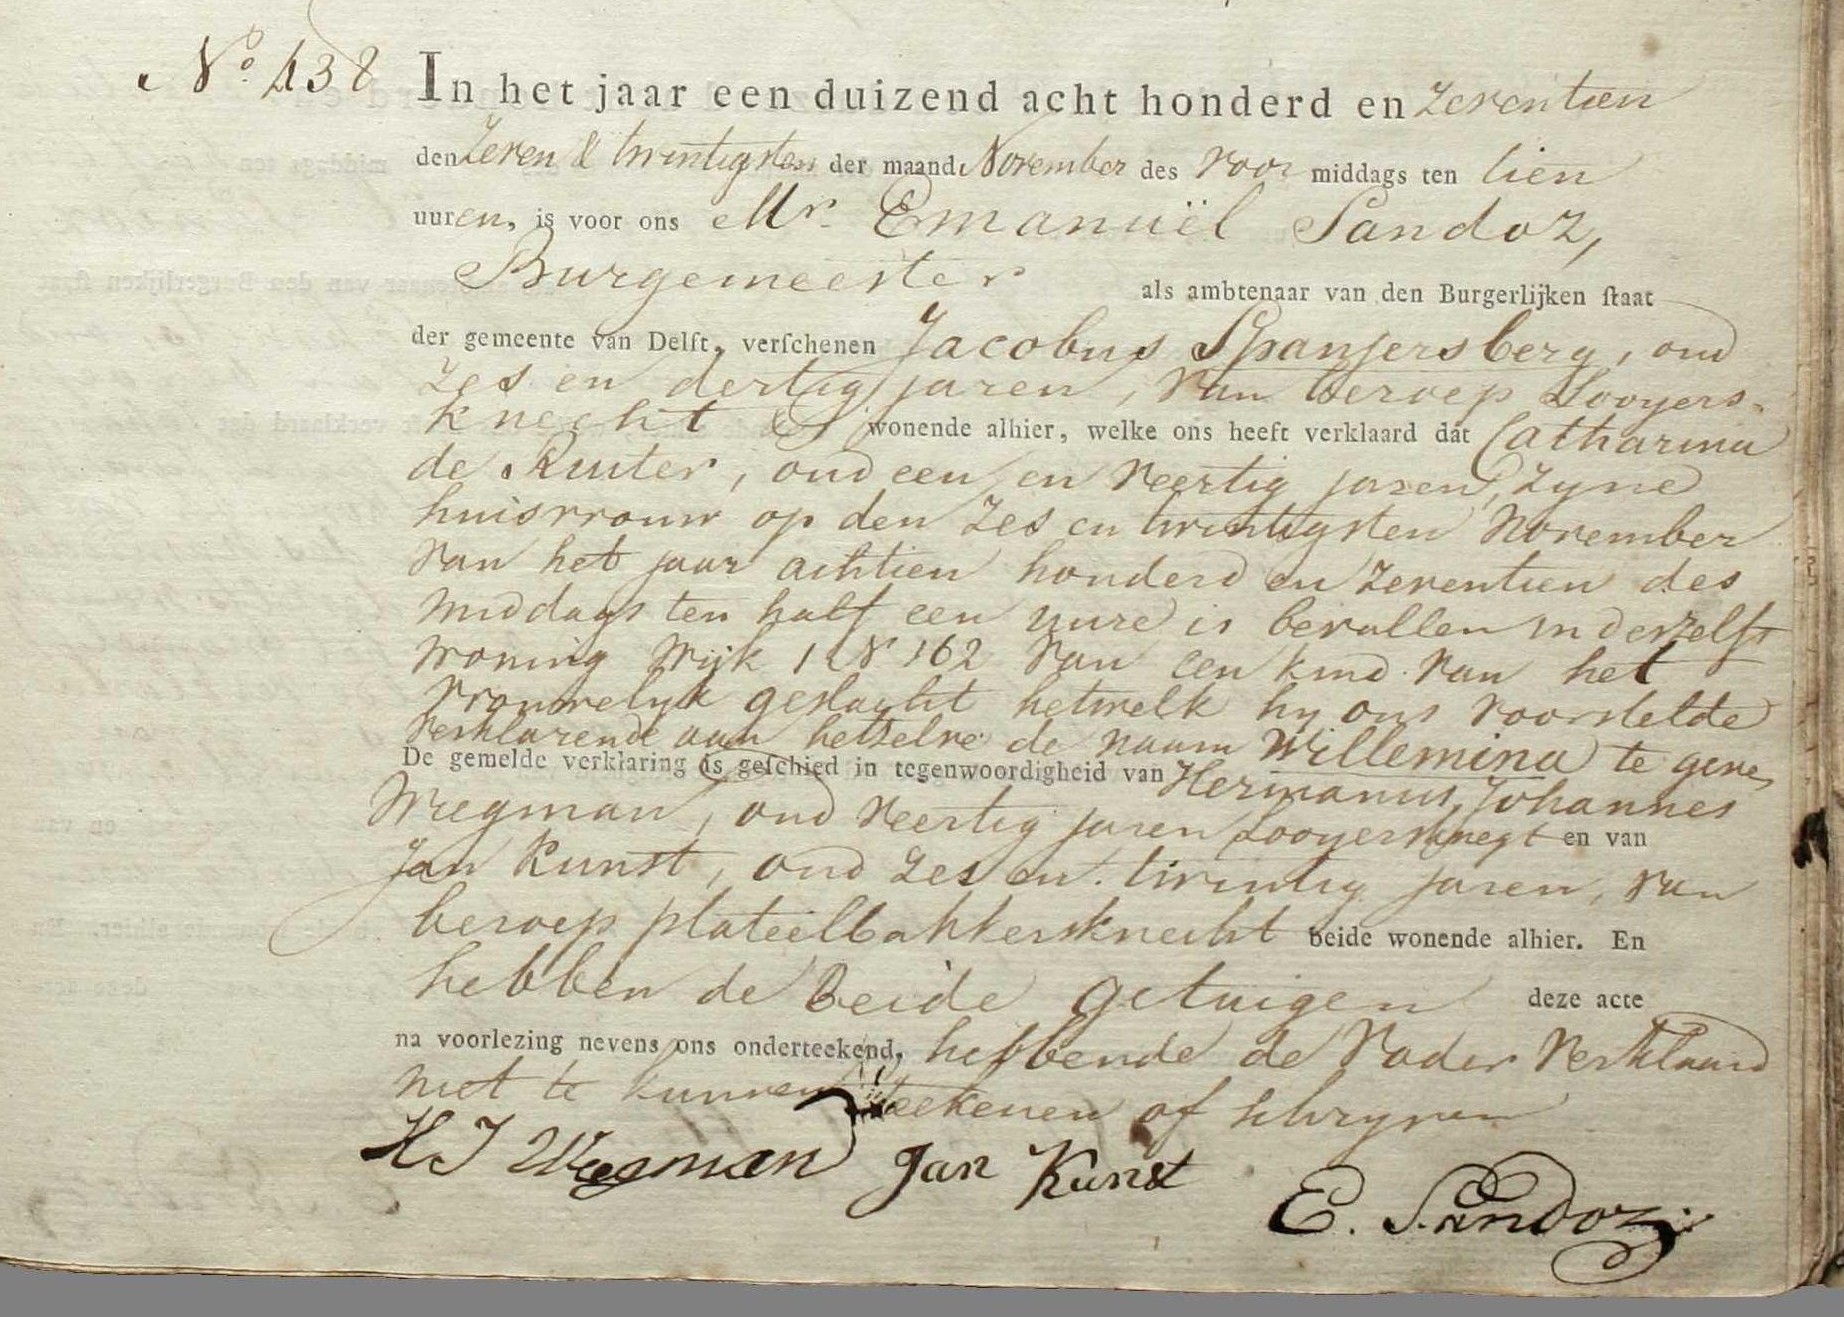 No. 438 In het jaar een duizend acht honderd en zeventien
den zeven & twintigsten der maand November des voor middags ten tien
uuren, is voor ons Mr. Emanuël Sandoz,
Burgemeester als ambtenaar van den Burgerlijken ſtaat
der gemeente van Delft, verſchenen Jacobus Spanjersberg, oud
zes en dertig jaren, van beroep Looyers-
knecht wonende alhier, welke ons heeft verklaard dat Catharina
de Ruiter, oud een en veertig jaren, zyne
huisvrouw op den zes en twintigsten November
van het jaar achtien honderd en zeventien des
middags ten half een uure is bevallen in derzelfr
woning wijk 1 N 162 van een kind van het
vrouwelyk geslacht hetwelk hy ons voorstelde
verklarende aan hetzelve de naam Willemina te geven
De gemelde verklaring is geſchied in tegenwoordigheid van Hermanus Johannes
Wregman, oud veertig jaren Looyersknegt en van
Jan Kunst, oud zes en twintig jaren, van
beroep plateelbakkersknecht beide wonende alhier. En
hebben de beide getuigen deze acte
na voorlezing nevens ons onderteekend, hebbende de vader verklaard
niet te kunnen teekenen of schryven
H J Wegman Jan Kunst
E. Sandoz